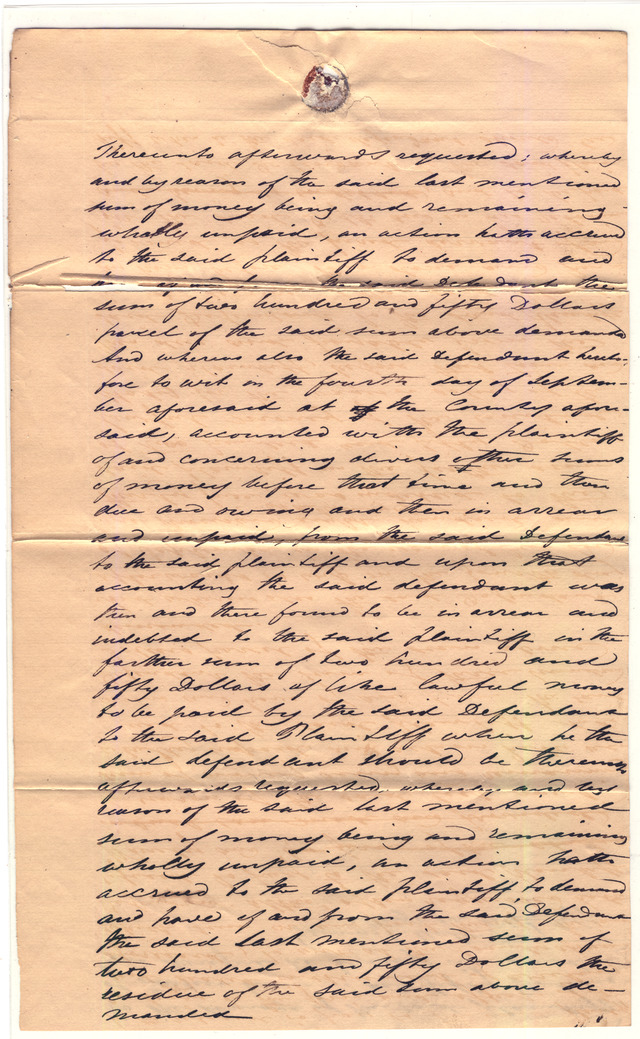 Thereunto afterwards requested; whereby
and by reason of the said last mentioned
sum of money being and remaining
wholly unpaid, an action hath accrued
to the said plaintiff to demand and
the said Defendant the
sum of two hundred and fifty Dollars
parcel of the said sum above demanded
And whereas also the said Defendant hereto-
fore to wit on the fourth day of Septem-
ber aforesaid at the County afore-
said, accounted with the plaintiff
of and concerning divers other sums
of money before that time and then
due and owing and then in arrear
and unpaid, from the said Defendant
to the said plaintiff and upon that
accounting the said defendant was
then and there found to be in arrear and
indebted to the said plaintiff in the
farther sum of two hundred and
fifty Dollars of like lawful money
to be paid by the said Defendant
to the said Plaintiff when he the
said defendant should be thereunto
afterwards requested, whereby and by
reason of the said last mentioned
sum of money being and remaining
wholly unpaid, an action hath
accrued to the said plaintiff, to demand
and have of and from the said Defendant
the said last mentioned sum of
two hundred and fifty Dollars the
residue of the said sum above de-
manded